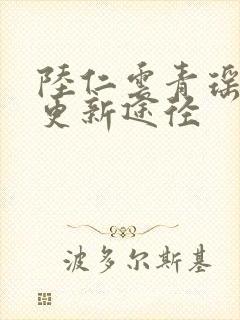 陸仁雲青瑶
更新途径
波多尔斯基